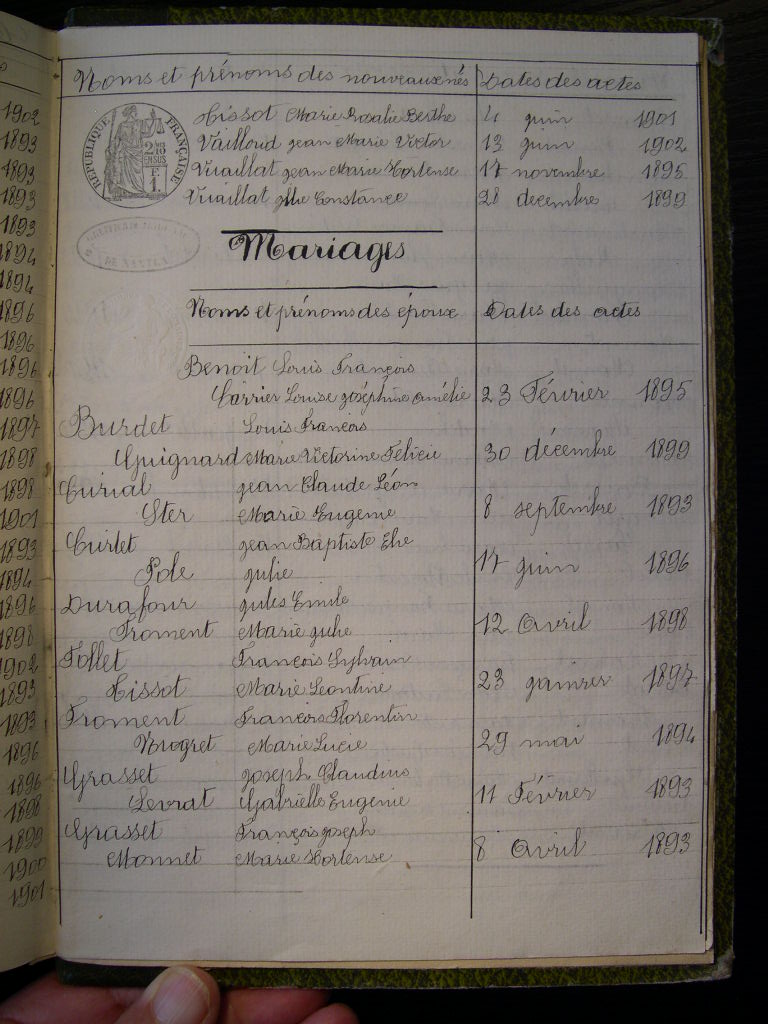 Noms et prénoms des nouveaux nés Dates des actes
Tissot Marie Rosalie Berthe 4 juin 1901
Vailloud jean Marie Victor 13 juin 1902
Vuaillat jean Marie Hortense 17 novembre 1895
Vuaillat Constance 28 decembre 1899
RÉPUBLIQUE FRANÇAISE
Mariages
Noms et prénoms des époux Dates des actes
Benoit Louis François
Carrier Louise joséphine amélie 23 Février 1895
Burdet Louis François
Guignard Marie Victorine Félicie 30 décembre 1899
Curial jean Claude Léon
Ster Marie Eugenie 8 septembre 1893
Curlet jean Baptiste Elie
Pole julie 17 juin 1896
Durafour jules Emile
Froment Marie julie 12 avril 1898
Follet François Sylvain
Tissot Marie Leontine 23 janvier 1897
Froment François Florentin
Marie Lucie 29 mai 1894
Grasset joseph Claudius
Levrat Gabrielle Eugenie 11 Février 1893
Grasset François joseph
Monnet Marie Hortense 8 avril 1893
1902
1893
1893
1893
1893
1894
1894
1896
1896
1896
1896
1897
1898
1898
1901
1893
1894
1896
1898
1902
1893
1893
1896
1896
1898
1899
1900
1901